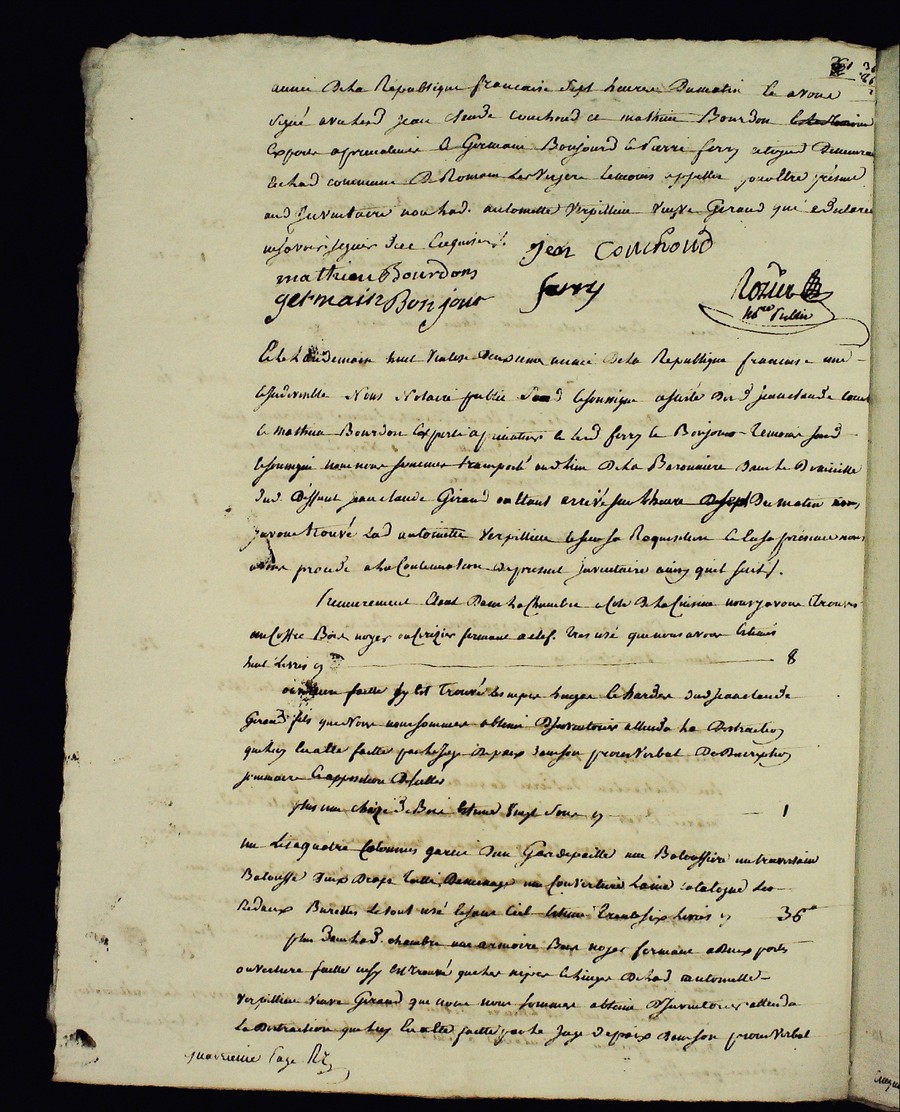 année De la Republique francaise Sept heures Du matin et avons
signé avec lesd jean claude couchoud et mathieu Bourdon
Experts apretiateurs et Germain Bonjourd et Pierre ferry citoyens Demeurant
en lad commune De Romans les Verger temoins appellés pour Etre présent
aud Inventaire non lad. antoinette Verpilliere veuve Giraud qui a Declaré
ne savoir signer de ce Enquise.
jean couchoud
mathieu Bourdons
germain Bonjour ferry Rozier
no.re Public
Et le Landemain huit Vantose Deuxieme année De la Republique francaise une
et Indivisible Nous Notaire public sousigné assisté Desd jean claude couch
et mathieu Bourdon Experts apretiateurs et lesd ferry et Bonjour Temoins
sousigné nous nous sommes transporté au lieu De la Baronniere Dans le Domicille
dud Deffunt jean claude Giraud ou Etant arrivé sur heure Du matin
y avons trouvé Lad antoinette Verpilliere et sur sa Requisition et En sa presence nous
avons procedé a la Continuation Du present Inventaire ainsy quil suit.
Premierement Etant Dans la Chambre a Coté De la Cuisine nous y avons trouvés
un Coffre Bois noyer ou Cerizier fermant a clef. tres usé que nous avons Estimés
huit Livres 8
ouverture faitte Il y Est trouvé les nipes linges et hardes dud jean claude
Giraud fils que Nous nous sommes abstenu D'Inventorier attendu La Distraction
quil En a Eté faitte par le juge De paix Dans son proces Verbal De Description
sommaire Et apposition De scellés
plus une chaize De Bois Estimé Vingt Sous 1
un Lit a quatre Colonnes garni D'un Gardepaille une Baloussiere un traversin
Balousse Deux Draps toille De menage une Couverture Laine Catalogne Les
Redaux Burattes Le tout usé Et sans Ciel Estimé Trente six Livres 36
plus Dans lad. chambre une armoire Bois noyer fermant a Deux portes
ouverture faitte ne sy Est trouvé que les nipes et linges De lad antoinette
Verpilliere veuve Giraud que nous nous sommes abstenu D'Inventorier attendu
La Distraction quil En a Eté faitte par le Juge De paix Dans son proces Verbal
quatrieme Page Rz